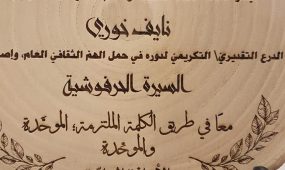 نايف خوري
الدرع التقديري\ التكريمي لدوره في حمل الهم الثقافي العام، وإصد
السيرة الحرفوشية
معًا في طريق الكلمة الملتزمة؛ الموحَّدة
والموحِّدة